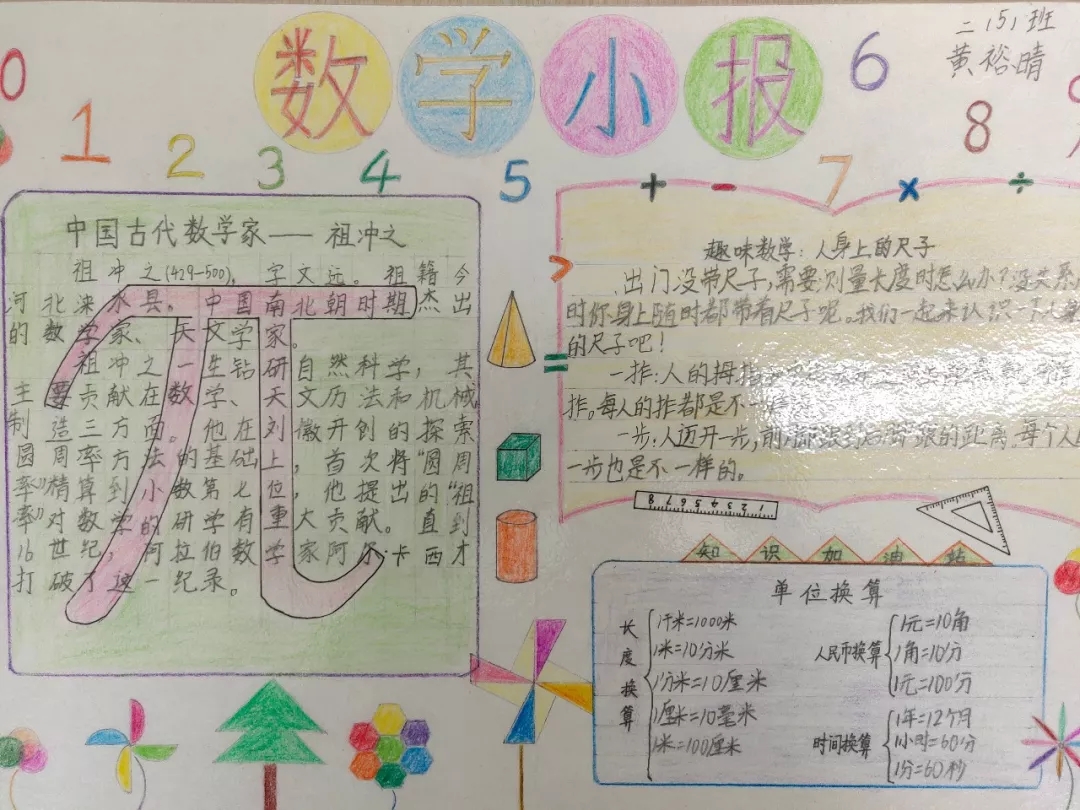 数学小报
二(5)班
黄裕晴
0 1 2 3 4 5 6 7 8
中国古代数学家——祖冲之
祖冲之(429-500),字文远。祖籍今
河北涞水县。中国南北朝时期杰出
的数学家、天文学家。
祖冲之一生钻研自然科学,其
主要贡献在数学、天文历法和机械
制造三方面。他在刘徽开创的探索
圆周率方法的基础上,首次将“圆周
率”精算到小数第七位,他提出的“祖
率”对数学的研学有重大贡献。直到
16世纪,阿拉伯数学家阿尔卡西才
打破了这一纪录。
+ - × ÷
>
=
趣味数学:人身上的尺子
出门没带尺子,需要测量长度时怎么办?没关系,
时你身上随时都带着尺子呢。我们一起来认识一下人身
的尺子吧!
一拃:人的拇指
拃。每人的拃都是不一
一步:人迈开一步,前脚 的距离,每个人的
一步也是不一样的。
1 2 3 4 5 6 7 8
知识加油站
单位换算
长度换算
1千米=1000米
1米=10分米
1分米=10厘米
1厘米=10毫米
1米=100厘米
人民币换算
1元=10角
1角=10分
1元=100分
时间换算
1年=12个月
1小时=60分
1分=60秒